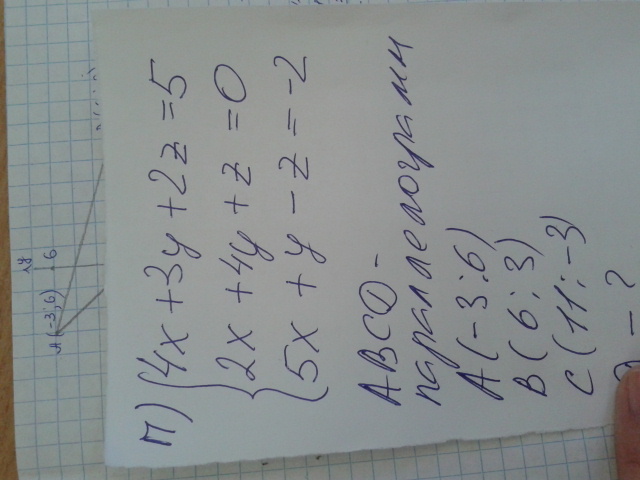 П) { 4x + 3y + 2z = 5
2x + 4y + z = 0
5x + y - z = -2
ABCD -
параллелограмм
A (-3; 6)
B (6; 3)
C (11; -3)
- ?
A (-3; 6)
6